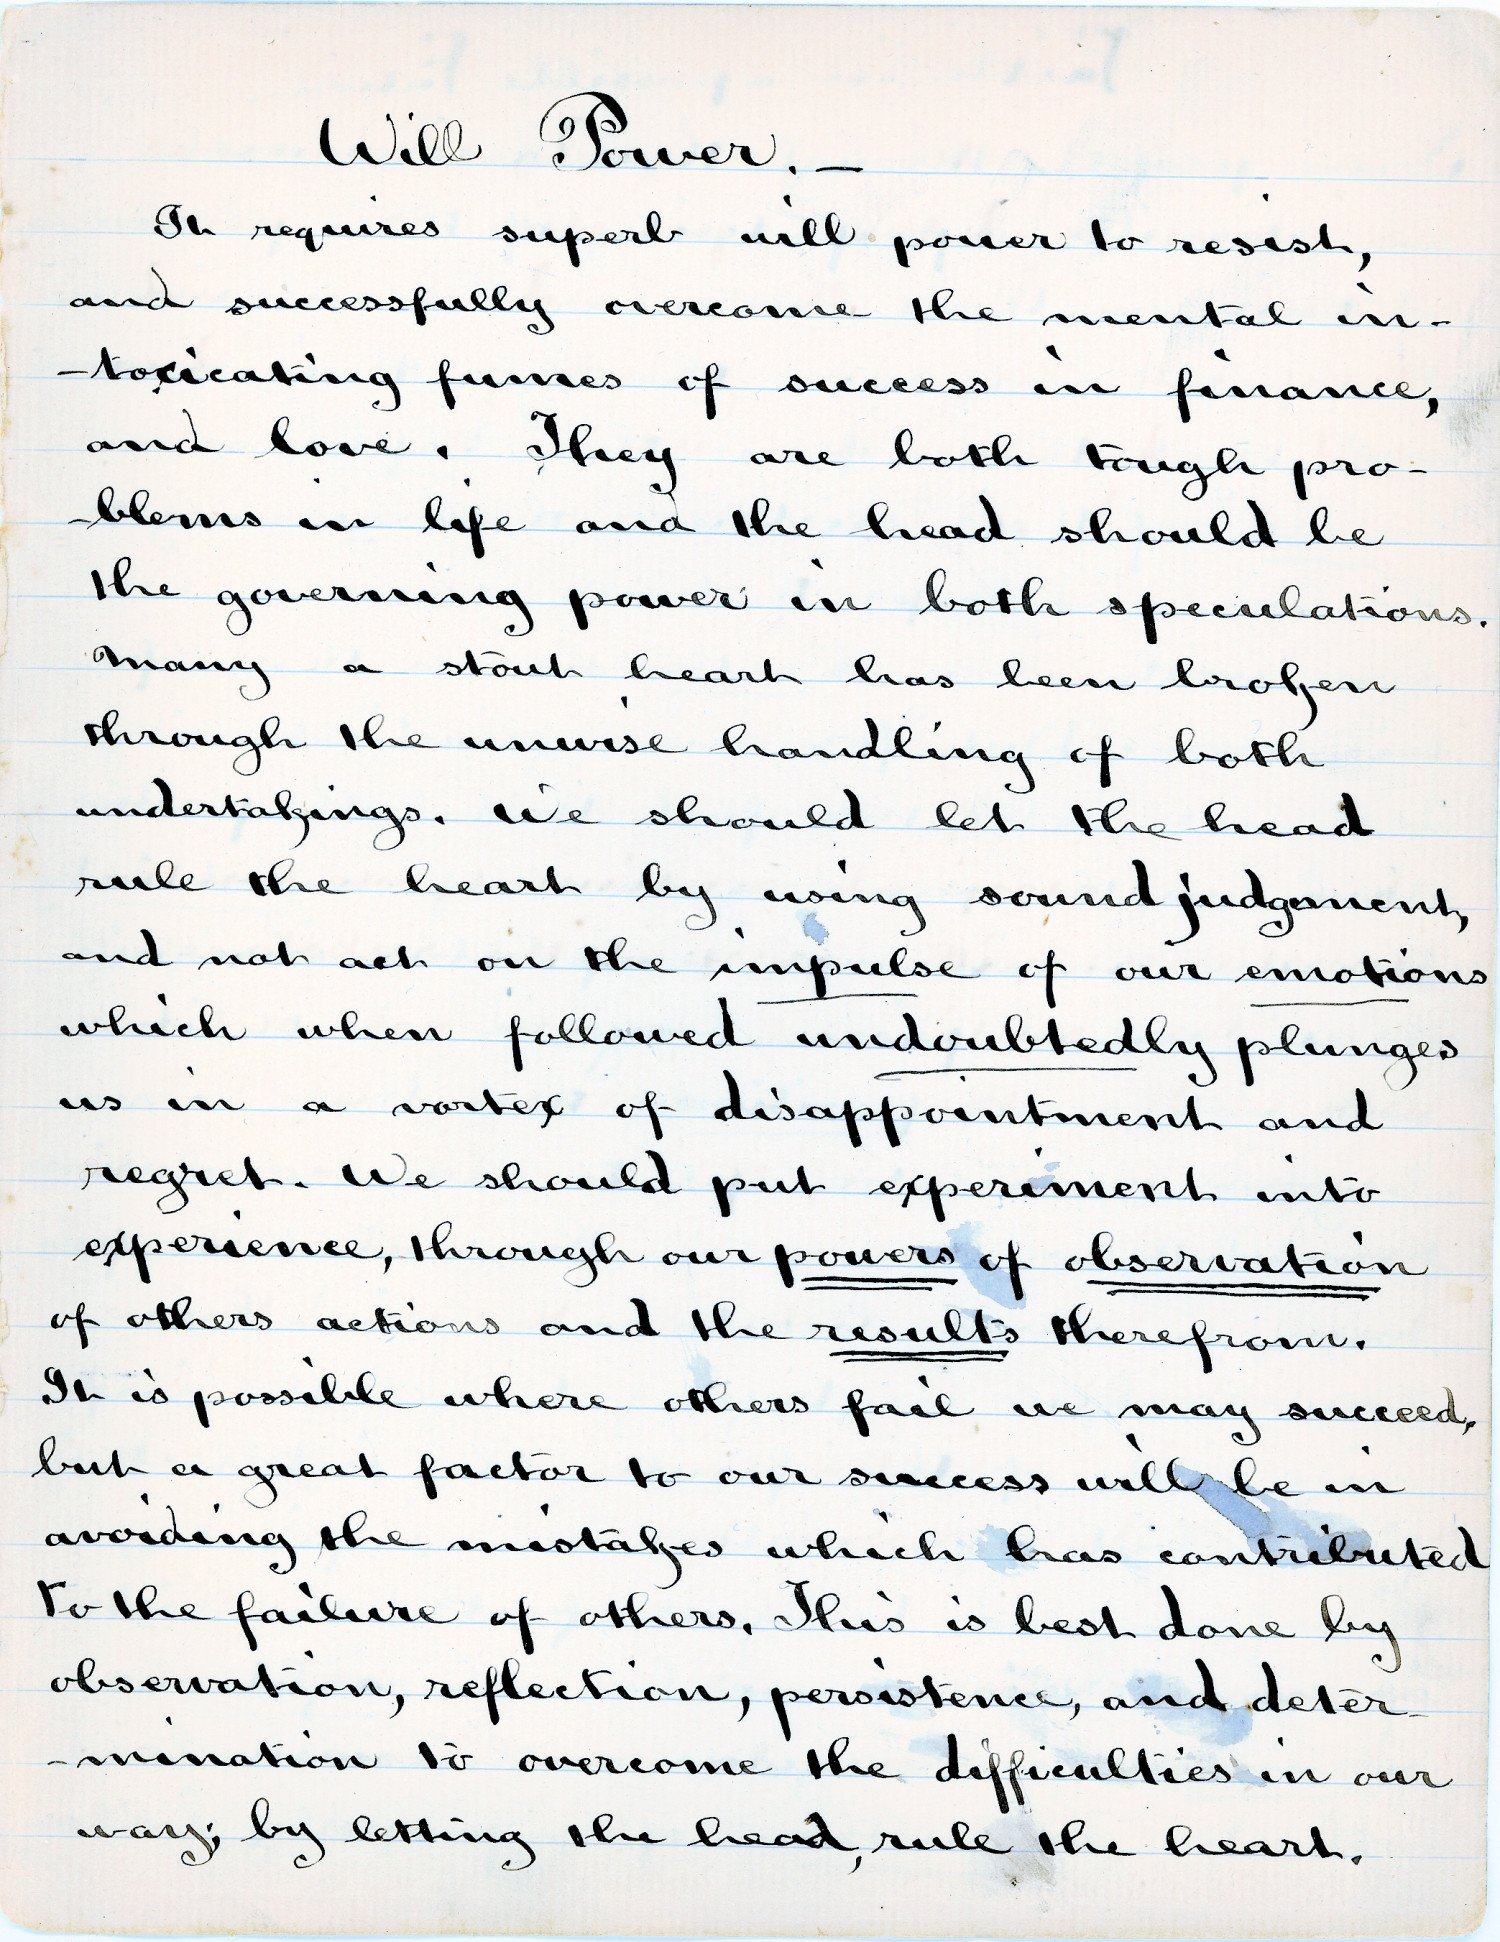 Will Power. —
It requires superb will power to resist,
and successfully overcome the mental in-
-toxicating fumes of success in finance,
and love. They are both tough pro-
-blems in life and the head should be
the governing power in both speculations.
Many a stout heart has been broken
through the unwise handling of both
undertakings. We should let the head
rule the heart by using sound judgement,
and not act on the impulse of our emotions
which when followed undoubtedly plunges
us in a vortex of disappointment and
regret. We should put experiment into
experience, through our powers of observation
of others actions and the results therefrom.
It is possible where others fail we may succeed,
but a great factor to our success will be in
avoiding the mistakes which has contributed
to the failure of others. This is best done by
observation, reflection, persistence, and deter-
-mination to overcome the difficulties in our
way; by letting the head, rule the heart.